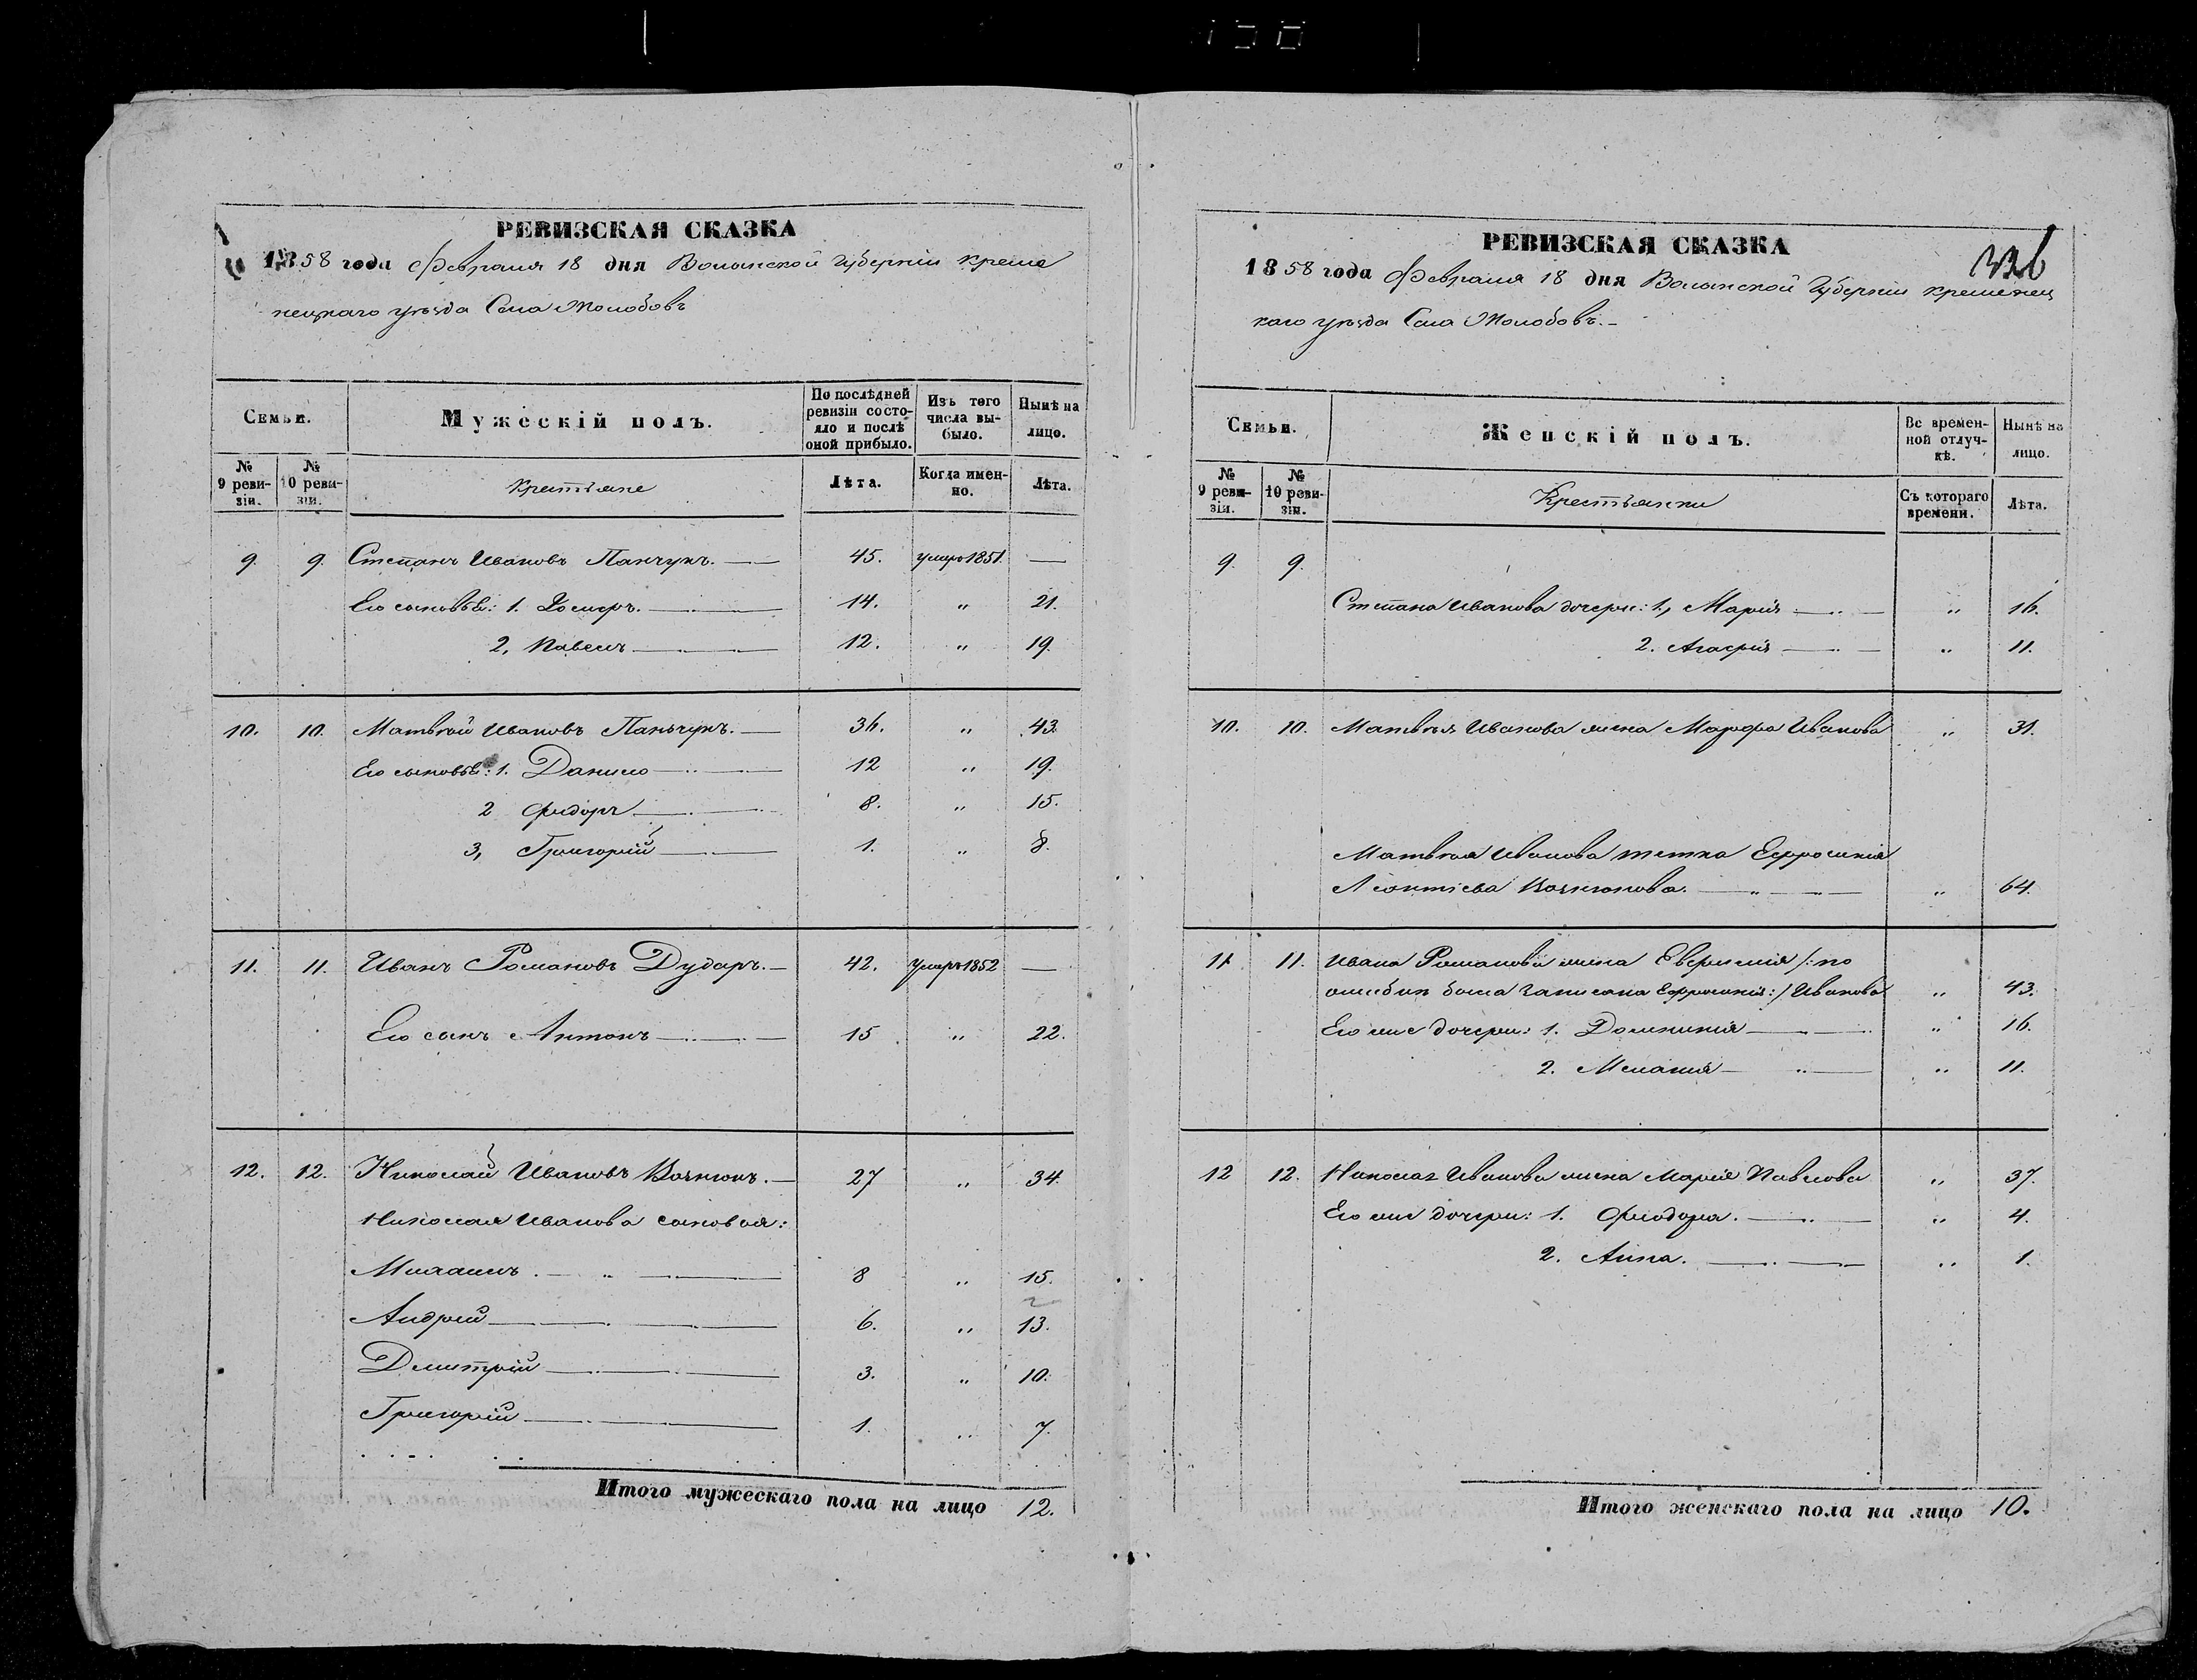 РЕВИЗСКАЯ СКАЗКА
1858 года Февраля 18 дня Волынской Губерніи Креме
нецкаго уѣзда Села Жолобовъ
Семьи.
Мужескій полъ.
По послѣдней ревизіи состояло и послѣ оной прибыло.
Изъ того числа выбыло.
Нынѣ на лицо.
№ 9 ревизіи.
№ 10 ревизіи.
Крестьяне
Лѣта.
Когда именно.
Лѣта.
9. 9. Степанъ Ивановъ Панчукъ. 45. умеръ 1851. —
Его сыновья: 1. 14. " 21.
2, Павелъ 12. " 19.
10. 10. Матвѣй Ивановъ Паньчукъ. 36. " 43.
Его сыновья: 1. Данило 12 " 19.
2 Фидоръ 8. " 15.
3, Григорій 1. " 8.
11. 11. Иванъ Романовъ Дударъ. 42. Умеръ 1852 —
Его сынъ Антонъ 15 " 22.
12. 12. Николай Ивановъ 27 " 34.
Николая Иванова сыновья:
8 " 15.
Андрей 6. " 13.
Дмитрій 3. " 10.
Григорій 1. " 7.
Итого мужескаго пола на лицо 12.
РЕВИЗСКАЯ СКАЗКА
1858 года Февраля 18 дня Волынской Губерніи Кременец
каго уѣзда Села Жолобовъ.
Семьи.
Женскій полъ.
Во временной отлучкѣ.
Нынѣ на лицо.
№ 9 ревизіи.
№ 10 ревизіи.
Крестьянки
Съ котораго времени.
Лѣта.
9. 9.
Степана Иванова дочери: 1, Марія " 16.
2. Агафія " 11.
10. 10. Матвѣя Иванова жена Марфа Иванова " 31.
Матвѣя Иванова тетка Ефросинія
Леонтіева " 64.
11 11. Ивана Романова жена /: по
ошибкѣ была записана Ефросинія :/ Иванова " 43.
Его же дочери: 1. Домникія " 16.
2. Меланія " 11.
12 12. Николая Иванова жена Марія Павлова " 37.
Его же дочери: 1. Феодора. " 4.
2. Анна. " 1.
Итого женскаго пола на лицо 10.